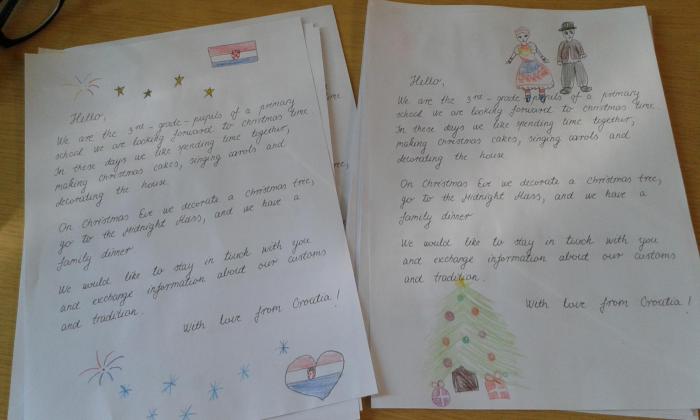 Hello,
We are the 3rd-grade-pupils of a primary
school we are looking forward to christmas time
In these days we like spending time together,
making christmas cakes, singing carrols and
decorating the house
On Christmas Eve we decorate a christmas tree,
go to the Midnight Mass, and we have a
family dinner
We would like to stay in tuoch with you
and exchange information about our customs
and tradition.
With love from Croatia!
Hello,
We are the 3rd-grade-pupils of a primary
school we are looking forward to christmas time
In these days we like spending time together,
making christmas cakes, singing carrols and
decorating the house
On Christmas Eve we decorate a christmas tree,
go to the Midnight Mass, and we have a
family dinner
We would like to stay in tuoch with you
and exchange information about our customs
and tradition.
With love from Croatia!